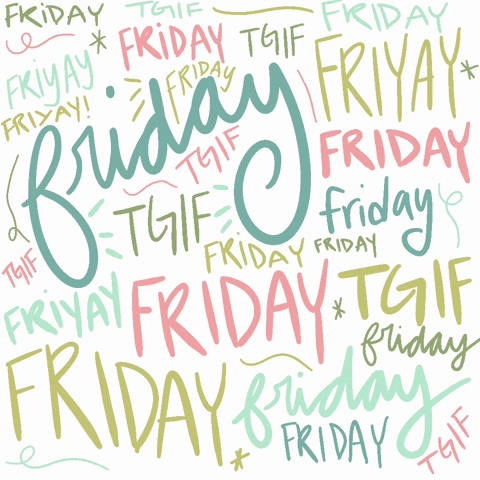 FRiDAY
TGIF
FRiDAY
FRiDAY
TGIF
FRIYAY
FRiYAY
FRIDAY
FRIYAY!
friday
FRIDAY
TGIF
friday
TGIF
FRIDAY
FRIDAY
TGIF
FRiYAY
FRIDAY
TGIF
friday
FRIDAY
friday
FRIDAY
TGIF